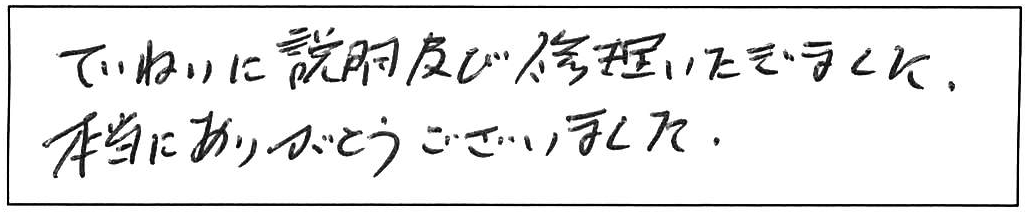 ていねいに説明及び修理いただきました.
本当にありがとうございました.